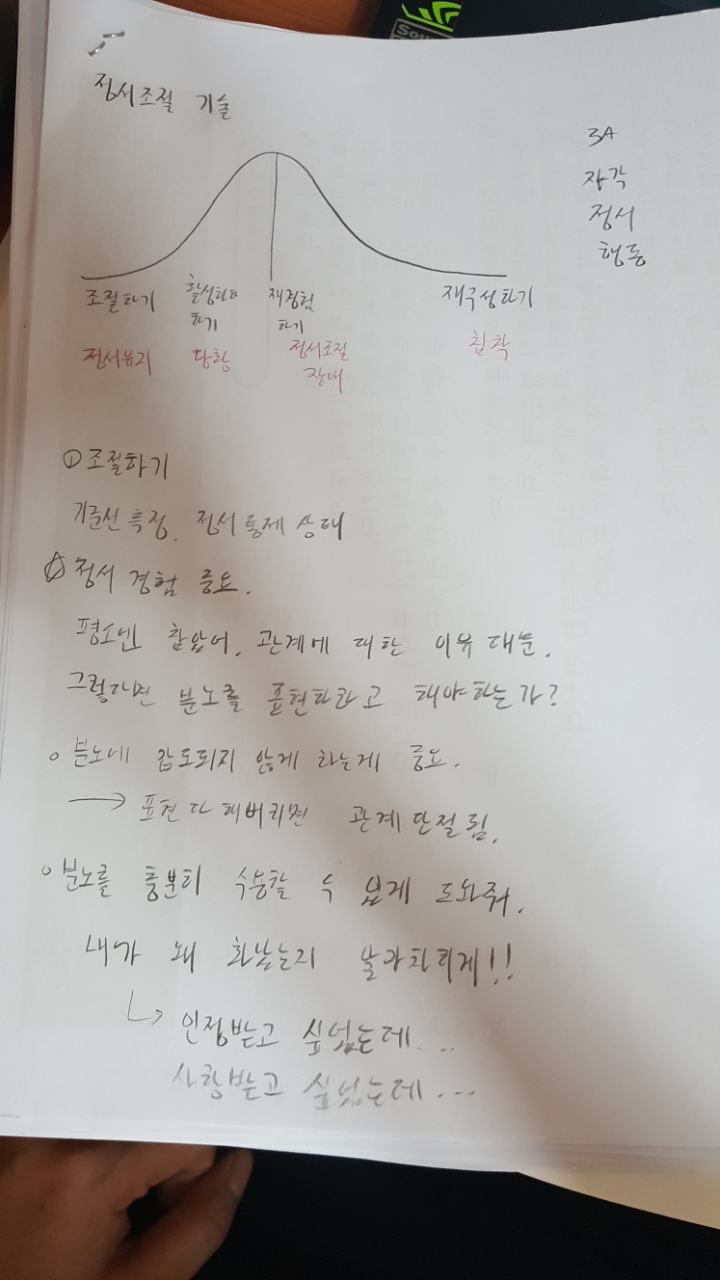 정서조절 기술
3A
자각
정서
행동
조절하기
활성화
하기
재경험
하기
재구성하기
정서유지
당황
정서조절
장애
침착
① 조절하기
기준선 측정. 정서 통제 상태
☆ 정서 경험 중요.
평소엔 참았어. 관계에 대한 이유 때문.
그렇다면 분노를 표현하라고 해야하는가?
◦ 분노에 압도되지 않게 하는게 중요.
→ 표현 다 해버리면 관계 단절됨.
◦ 분노를 충분히 수용할 수 있게 도와줘.
내가 왜 화났는지 알아차리게!!
↳ 인정받고 싶었는데...
사랑받고 싶었는데...